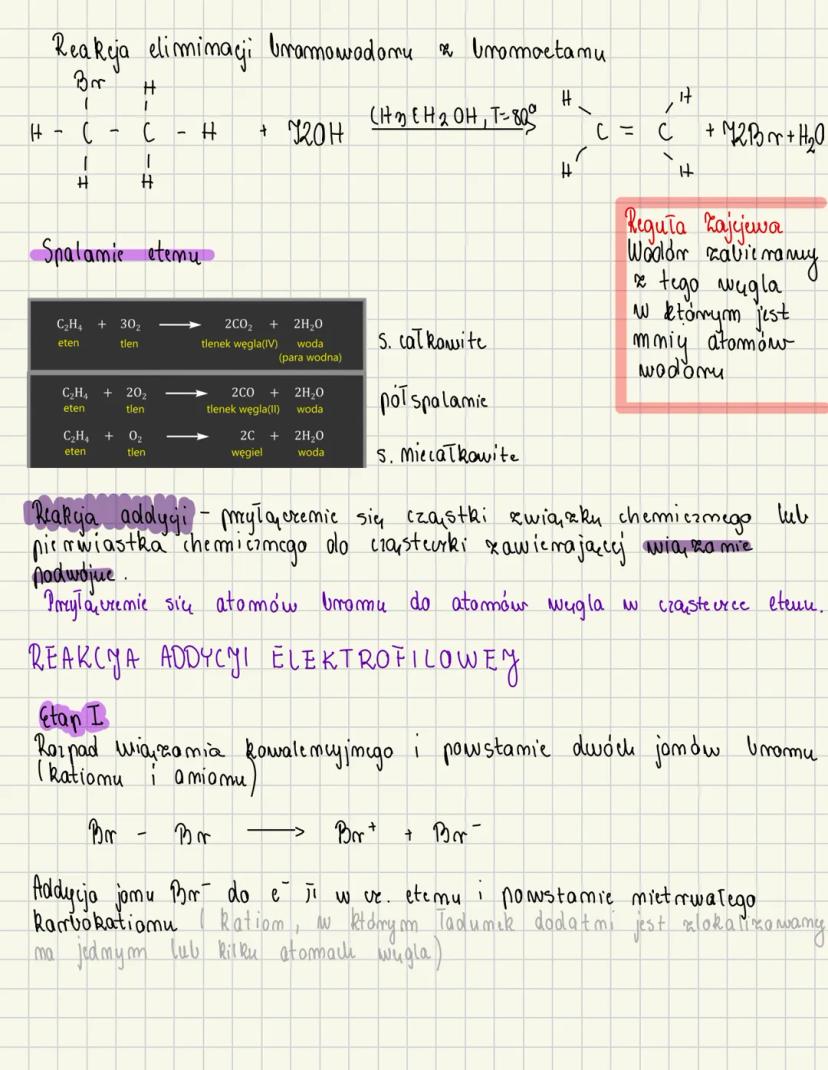 Reakcja eliminacji bromowodoru z bromoetanu
Br H
H - C - C - H + KOH CH3CH2OH, T=80° C = C + KBr + H2O
H H
H H
H H
Reguła Zajcewa
Wodór zabieramy
z tego węgla
w którym jest
mniej atomów
wodoru
Spalanie etenu
C₂H₄ + 3O₂ ⟶ 2CO₂ + 2H₂O
eten tlen tlenek węgla(IV) woda
(para wodna)
s. całkowite
C₂H₄ + 2O₂ ⟶ 2CO + 2H₂O
eten tlen tlenek węgla(II) woda
półspalanie
C₂H₄ + O₂ ⟶ 2C + 2H₂O
eten tlen węgiel woda
s. niecałkowite
Reakcja addycji - przyłączenie się cząstki związku chemicznego lub
pierwiastka chemicznego do cząsteczki zawierającej wiązanie
podwójne.
Przyłączenie się atomów bromu do atomów węgla w cząsteczce etenu.
REAKCJA ADDYCJI ELEKTROFILOWEJ
Etap I
Rozpad wiązania kowalencyjnego i powstanie dwóch jonów bromu
(kationu i anionu)
Br - Br ⟶ Br⁺ + Br⁻
Addycja jonu Br⁻ do e⁻ π w cz. etenu i powstanie nietrwałego
karbokationu (kation, w którym ładunek dodatni jest zlokalizowany
na jednym lub kilku atomach węgla)